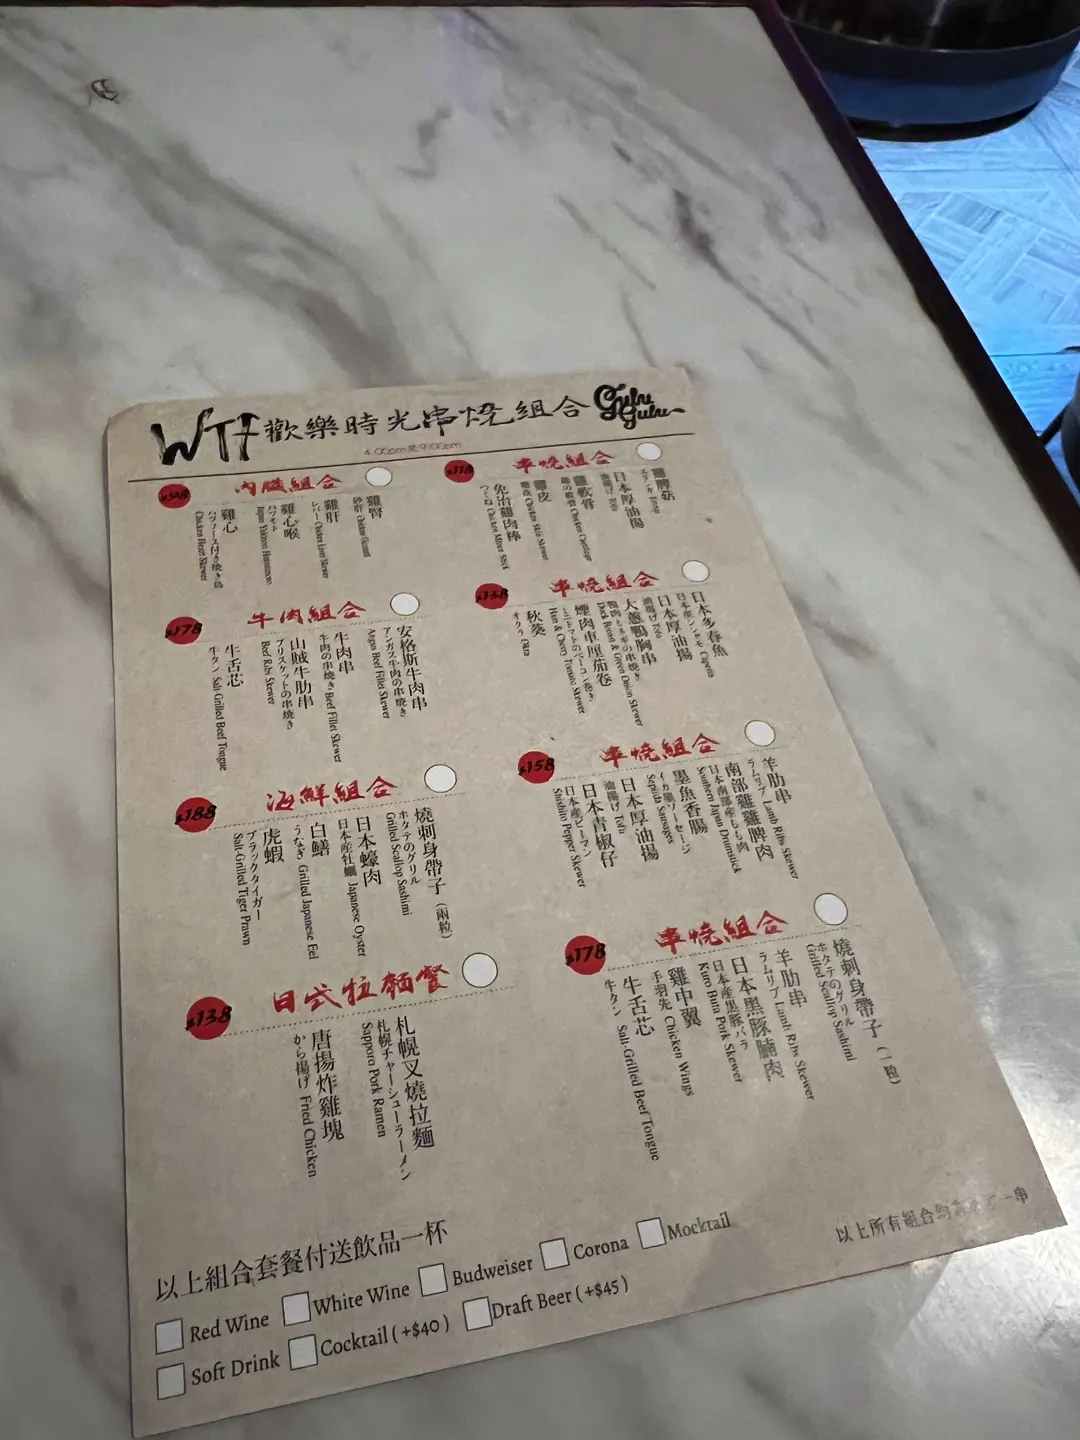 WTF 歡樂時光串燒組合 Gulu Gulu
內臟組合
雞腎
砂肝 Chicken Gizzard
雞肝
レバー Chicken Liver Skewer
雞心喉
ハツモト
雞心
Chicken Heart Skewer
$178 牛肉組合
安格斯牛肉串
アンガス牛肉の串焼き
Angus Beef Fillet Skewer
牛肉串
牛肉の串焼き Beef Fillet Skewer
山賊牛肋串
ブリスケットの串焼き
Beef Ribs Skewer
牛舌芯
牛タン Salt-Grilled Beef Tongue
$188 海鮮組合
燒刺身帶子（兩粒）
ホタテのグリル
Grilled Scallop Sashimi
日本蠔肉
日本産牡蠣 Japanese Oyster
白鱔
うなぎ Grilled Japanese Eel
虎蝦
ブラックタイガー
Salt-Grilled Tiger Prawn
$138 日式拉麵餐
札幌叉燒拉麵
札幌チャーシューラーメン
Sapporo Pork Ramen
唐揚炸雞塊
から揚げ Fried Chicken
$118 串燒組合
日本厚油揚
油揚げ Tofu
雞軟骨
雞皮
Chicken Skin Skewer
免治雞肉棒
つくね Chicken Mince Stick
$138 串燒組合
日本多春魚
日本産シシャモ Capelin
日本厚油揚
油揚げ Tofu
大蔥鴨胸串
Duck Breast & Green Onion Skewer
煙肉車厘茄卷
ミニトマトのベーコン巻き
Ham & Cherry Tomato Skewer
秋葵
オクラ Okra
$158 串燒組合
羊肋串
ラムリブ Lamb Ribs Skewer
南部雞雞髀肉
日本南部産もも肉
Southern Japan Drumstick
墨魚香腸
イカ墨ソーセージ
Sepiida Sausages
日本厚油揚
油揚げ Tofu
日本青椒仔
日本産ピーマン
Shishito Pepper Skewer
$178 串燒組合
燒刺身帶子（一粒）
ホタテのグリル
Grilled Scallop Sashimi
羊肋串
ラムリブ Lamb Ribs Skewer
日本黑豚腩肉
日本産黒豚バラ
Kuro Buta Pork Skewer
雞中翼
手羽先 Chicken Wings
牛舌芯
牛タン Salt-Grilled Beef Tongue
以上所有組合
一串
以上組合套餐付送飲品一杯
Red Wine White Wine Budweiser Corona Mocktail
Soft Drink Cocktail ( +$40 ) Draft Beer ( +$45 )